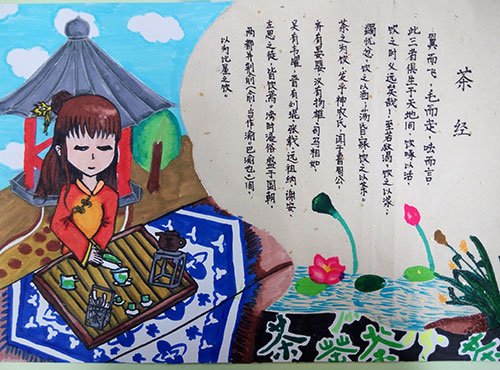 茶经
翼而飞,毛而走,呿而言
此三者俱生于天地间,饮啄以活,
饮之时义远矣哉!至若救渴,饮之以浆;
蠲忧忿,饮之以酒;荡昏寐,饮之以茶。
茶之为饮,发乎神农氏,闻于鲁周公。
齐有晏婴,汉有扬雄、司马相如,
吴有韦曜,晋有刘琨、张载、远祖纳、谢安、
左思之徒,皆饮焉。滂时浸俗,盛于国朝,
两都并荆俞(俞,当作渝。巴渝也)间,
以为比屋之饮。
茶